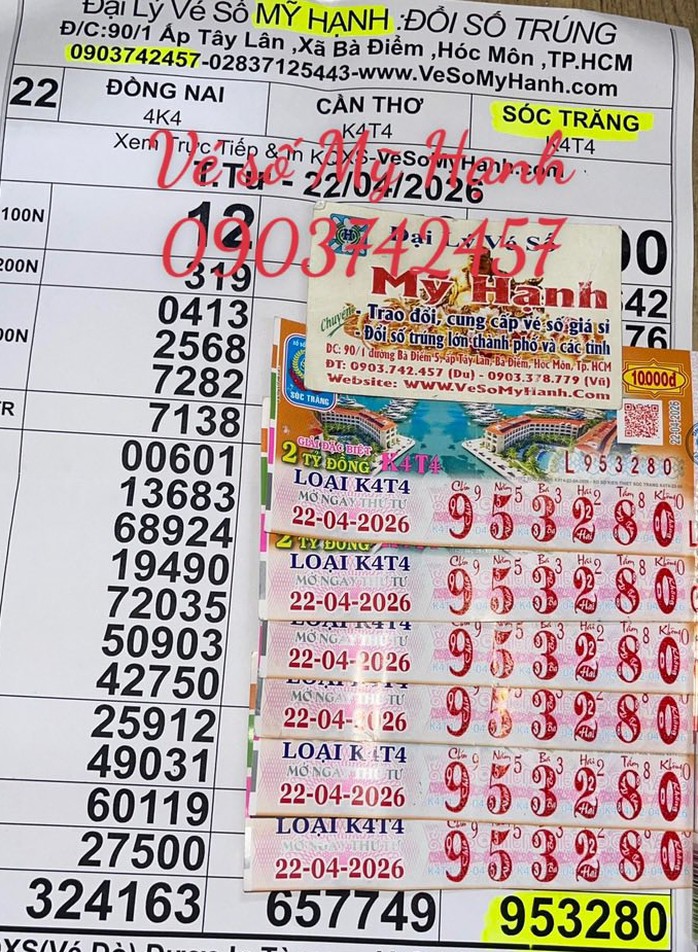 Đại Lý Vé Số MỸ HẠNH :ĐỔI SỐ TRÚNG
Đ/C:90/1 Ấp Tây Lân ,Xã Bà Điểm ,Hóc Môn ,TP.HCM
0903742457-02837125443-www.VeSoMyHanh.com
22 ĐỒNG NAI CẦN THƠ SÓC TRĂNG
4K4 K4T4 K4T4
Xem Trực Tiếp & In KQXS-VeSoMyHanh.com
T.Tư - 22/04/2026
Vé số Mỹ Hạnh
0903742457
100N 12 00
200N 319 42
00N 0413 76
2568
7282
TR 7138
00601
13683
68924
19490
72035
50903
42750
25912
49031
60119
27500
324163 657749 953280
Đại Lý Vé Số
Mỹ Hạnh
Chuyên: - Trao đổi, cung cấp vé số giá sỉ
- Đổi số trúng lớn thành phố và các tỉnh
ĐC: 90/1 đường Bà Điểm 5, ấp Tây Lân, Bà Điểm, Hóc Môn, Tp. HCM
ĐT: 0903.742.457 (Du) - 0903.378.779 (Vũ)
Website: WWW.VeSoMyHanh.Com
SÓC TRĂNG
10.000đ
22-04-2026
GIẢI ĐẶC BIỆT
2 TỶ ĐỒNG K4T4
L 953280
LOẠI K4T4
MỞ NGÀY THỨ TƯ
22-04-2026
Chín Năm Ba Hai Tám Không
953280
2 TỶ ĐỒNG
LOẠI K4T4
MỞ NGÀY THỨ TƯ
22-04-2026
Chín Năm Ba Hai Tám Không
953280
LOẠI K4T4
MỞ NGÀY THỨ TƯ
22-04-2026
953280
MỞ NGÀY THỨ TƯ
22-04-2026
953280
LOẠI K4T4
MỞ NGÀY THỨ TƯ
22-04-2026
Chín Năm Ba Hai Tám Không
953280
LOẠI K4T4
MỞ NGÀY THỨ TƯ
22-04-2026
Chín Năm Ba Hai Tám Không
953280